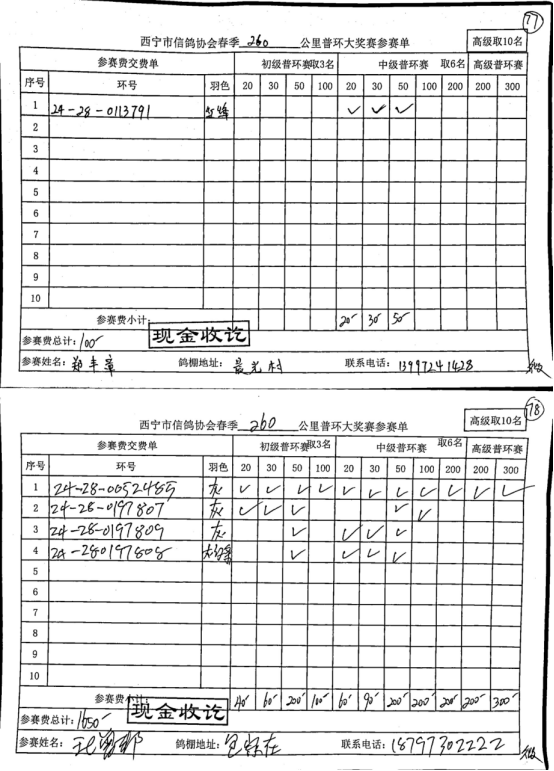 77
西宁市信鸽协会春季 260 公里普环大奖赛参赛单 高级取10名
参赛费交费单 初级普环赛取3名 中级普环赛 取6名 高级普环赛
序号 环号 羽色 20 30 50 100 20 30 50 100 200 200 300
1 24-28-0113791 ✓ ✓ ✓
2
3
4
5
6
7
8
9
10
参赛费小计: 20 30 50
参赛费总计: 100 现金收讫
参赛姓名: 郑丰章 鸽棚地址: 晨光村 联系电话: 13997241428
78
西宁市信鸽协会春季 260 公里普环大奖赛参赛单 高级取10名
参赛费交费单 初级普环赛取3名 中级普环赛 取6名 高级普环赛
序号 环号 羽色 20 30 50 100 20 30 50 100 200 200 300
1 24-28-0052485 灰 ✓ ✓ ✓ ✓ ✓ ✓ ✓ ✓ ✓ ✓ ✓
2 24-28-0197807 灰 ✓ ✓ ✓ ✓ ✓
3 24-28-0197809 灰 ✓ ✓ ✓ ✓
4 24-280197808 ✓ ✓ ✓ ✓
5
6
7
8
9
10
参赛费小计: 40 60 200 100 60 90 200 200 200 200 300
参赛费总计: 1650 现金收讫
参赛姓名: 鸽棚地址: 联系电话: 18797302222